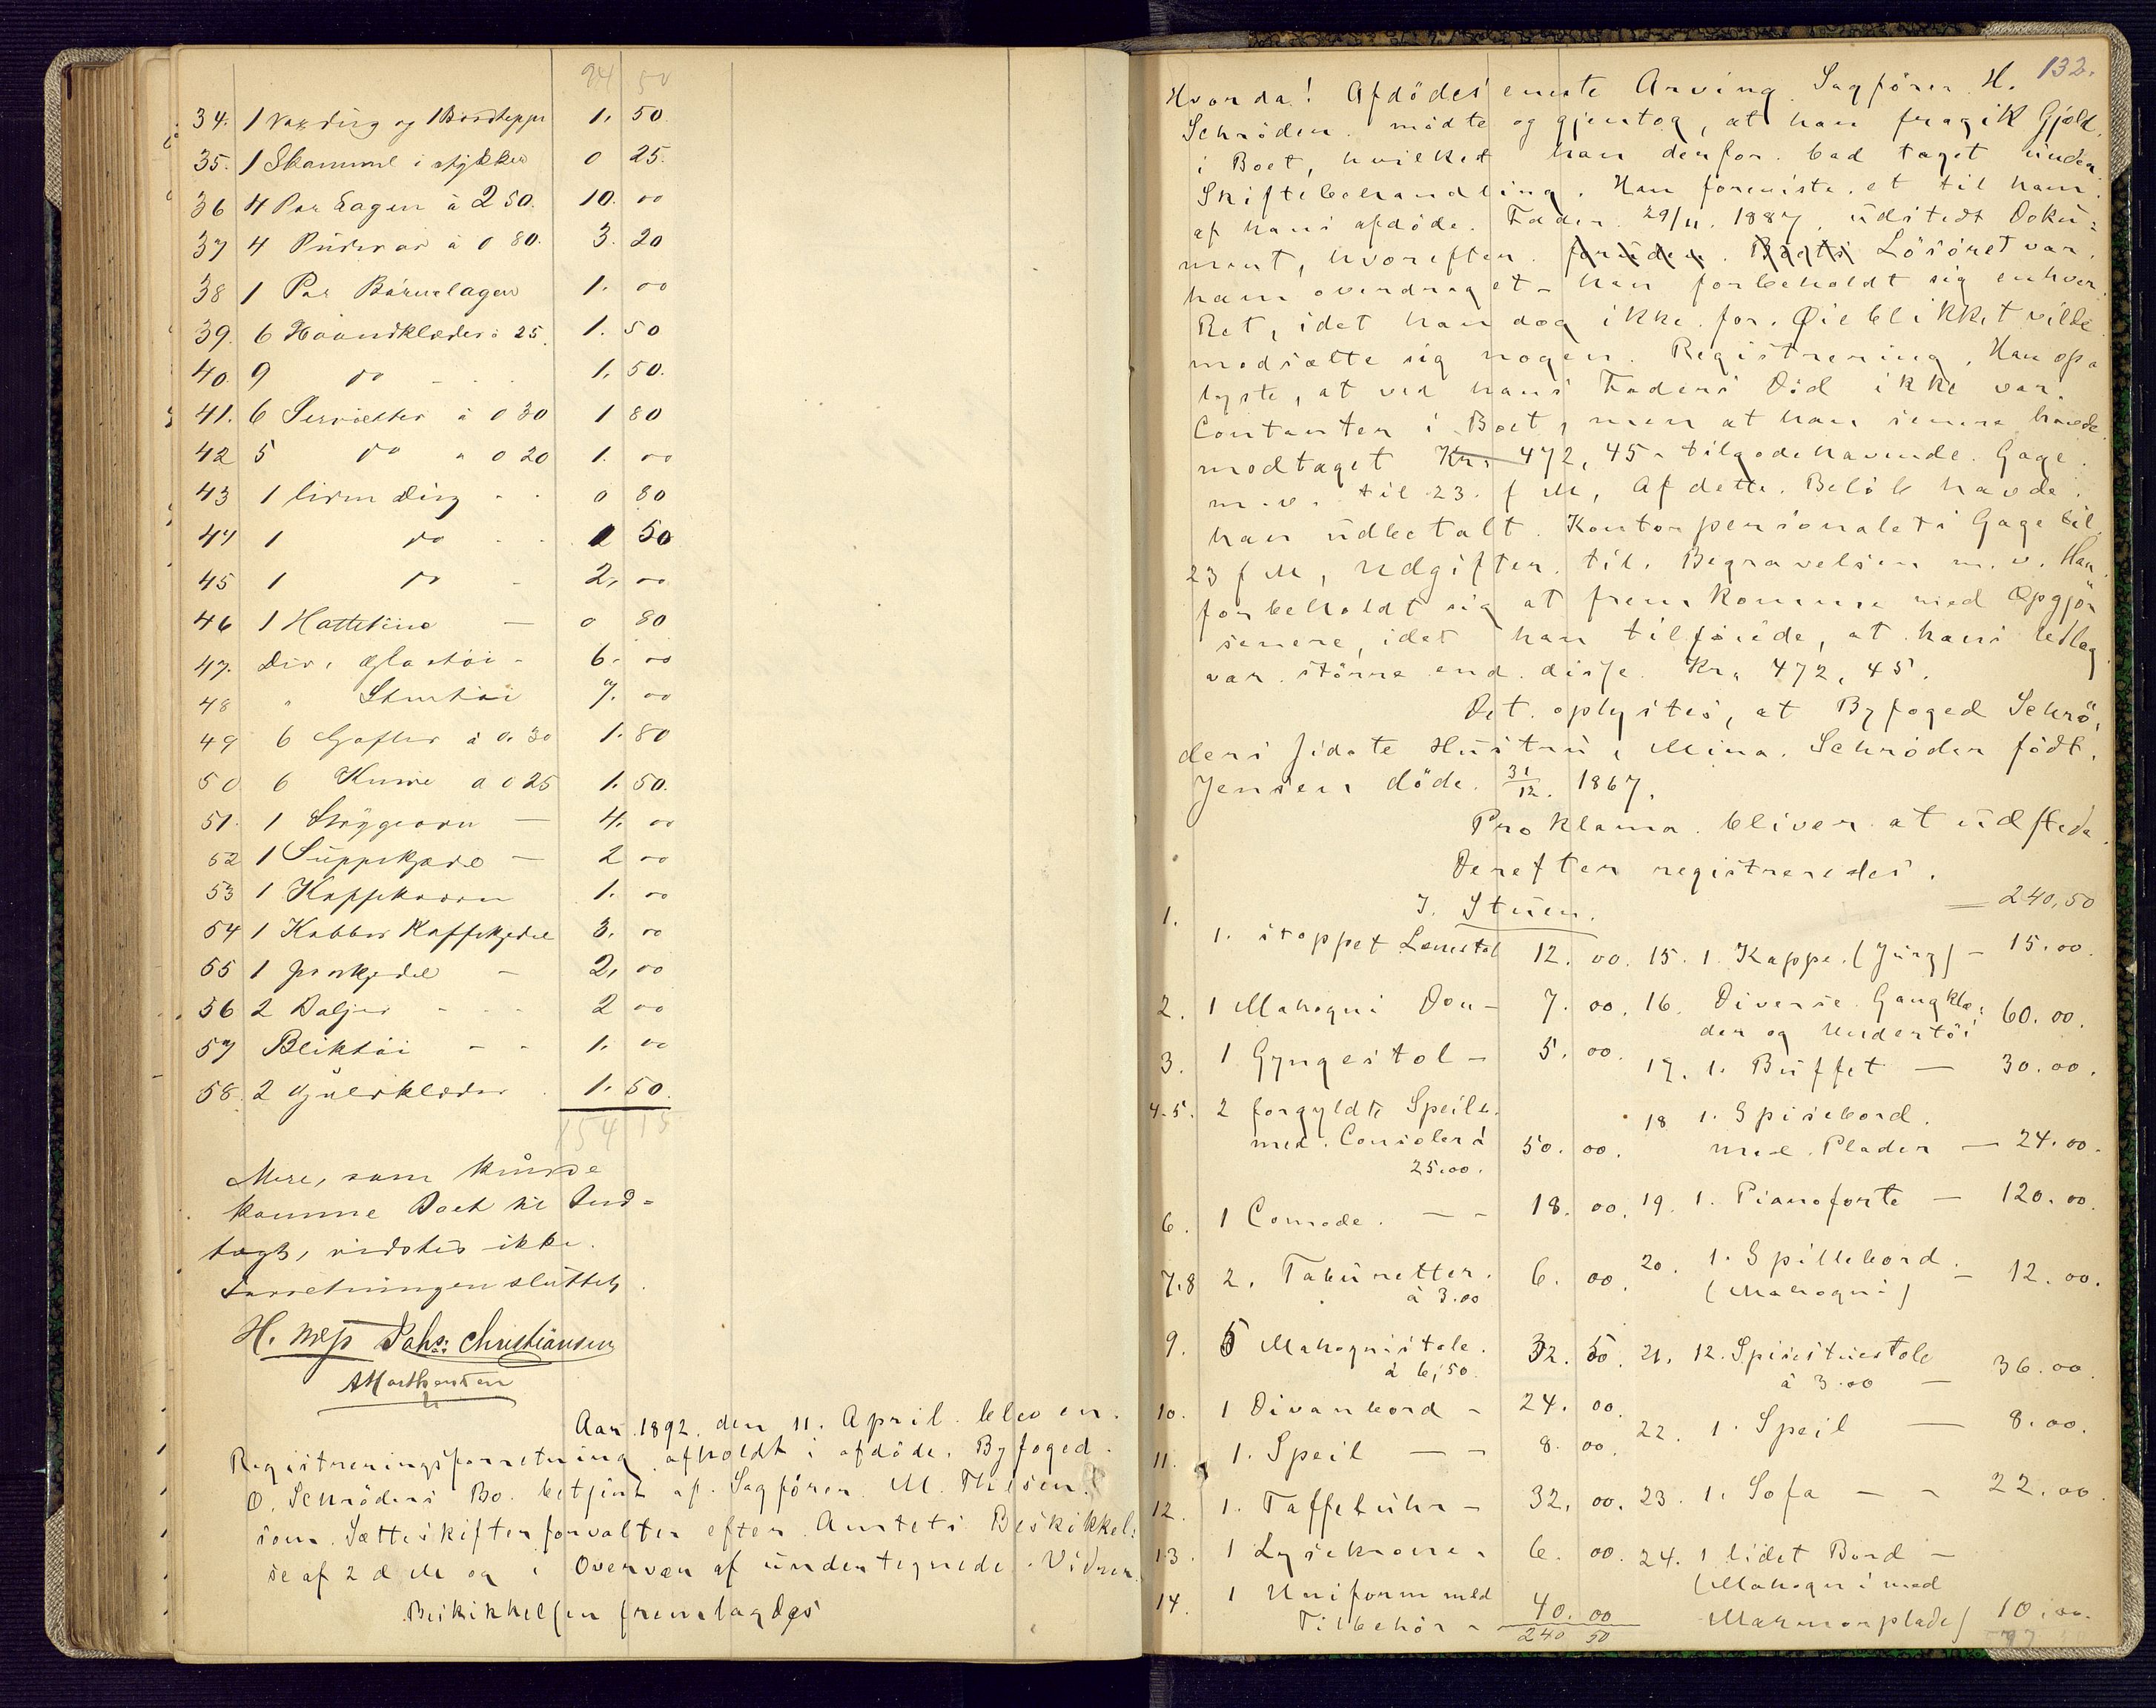 94 50
34. 1 Voxdug og 1 Bordteppe 1. 50
35. 1 Skammel i stykker 0 25.
36 4 Par Lagen à 2 50. 10. 00
37 4 Pudevar à 0 80. 3. 20
38 1 Par Barnelagen 1. 00
39. 6 Haandklæder à 25. 1. 50
40. 9 do - - - 1. 50.
41. 6 Servietter à 0 30 1 80
42 5 do a 0 20 1. 00
43 1 liden Dug - - 0 80
44 1 do - - 1 50
45 1 do - 2. 00
46 1 Hattetine — 0 80
47. Div. Glastøi - 6. 00
48 " Stentøi 7. 00
49 6 Gafler à 0. 30 1. 80
50 6 Knive a 0 25 1. 50.
51. 1 Strygeovn — 4. 00
52 1 Suppekjedel — 2 00
53 1 Kaffekværn 1. 00
54 1 Kobber Kaffekjedel 3. 00
55 1 jernkjedel — 2, 00
56 2 Baljer - - - 2 00
57 Bliktøi - - 1. 00
58. 2 Gulvklæder . 1. 50.
154 15
Mere, som kunde
komme Boet til Ind-
tægt, vidstes ikke.
Forretningen sluttet.
H. Johs: Christiansen
AMorthensen
Aar 1892. den 11. April. blev en.
Registreringsforretning afholdt i afdöde. Byfoged.
O. Schröders Bo. betjent af. Sagförer. M. Thesen.
som. Sætteskifteforvalter efter. Amtets Beskikkel:
se af 2 d M og i Overvær af undertegnede. Vidner.
Beskikkelsen fremlagdes
132.
Hvorda! Afdödes eneste Arving. Sagförer H.
Schröder. mödte og gjentog, at han fragik Gjæld.
i Boet, hvilket han derfor. bad taget under.
Skiftebehandling. Han foreviste. et til ham.
af hans afdöde. Fader. 29/11. 1887. udstedt Doku:
ment, hvorefter. foruden. Boets Lösöret var.
ham overdraget - han forbeholdt sig enhver.
Ret, idet han dog ikke. for. Øieblikket vilde
modsætte sig nogen. Registrering. Han op-
lyste, at ved hans Faders Död ikke var.
Contanter i Boet, men at han senere havde.
modtaget Kr. 472, 45 - tilgodehavende. Gage.
m. v. til 23. f M, Af dette. Belöb havde.
han udbetalt. Kontorpersonalets Gage til.
23 f M, Udgifter. til. Begravelsen m. v. Han.
forbeholdt sig at fremkomme med Opgjör
senere, idet han tilföiede, at hans Udlæg
var. större end. disse. Kr. 472, 45.
Det. oplystes, at Byfoged Schrö,
ders sidste Hustru, Mina. Schröder födt.
Jensen döde. 31/12. 1867.
Proklama. bliver at udstede.
Derefter registreredes.
I. Stuen. — 240,50
1. 1. stoppet Lænestol 12. 00. 15. 1. Kappe. (Jürg) - 15.00.
2. 1 Mahogni Do. - 7. 00. 16. Diverse. Gangklæ:
der og Undertöi 60. 00.
3. 1 Gyngestol - 5. 00. 17. 1. Buffet — 30.00.
4-5. 2 forgyldte Speile.
med. Consoler à
25.00. 50. 00. 18 1. Spisebord.
med. Plader — 24. 00.
6. 1 Comode. — - 18. 00. 19. 1. Pianoforte — 120. 00.
7.8 2. Taburetter.
à 3.00 6. 00. 20. 1. Spillebord.
(Mahogni) - 12. 00.
9. 5 Mahognistole.
à 6,50. 32. 50. 21. 12. Spisestuestole
à 3.00 — 36.00.
10. 1 Divanbord - 24. 00.
11. 1. Speil — - 8. 00. 22. 1. Speil — 8.00.
12. 1. Taffeluhr - 32. 00. 23. 1. Sofa - - 22. 00.
13. 1 Lysekrone - 6. 00. 24. 1 lidet Bord -
(Mahogni med
Marmorplade) 10. 00.
14. 1 Uniform med
Tilbehör - 40. 00
240 50